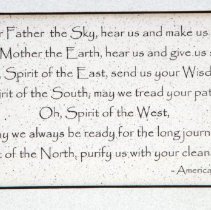 Father the Sky, hear us and make us
Mother the Earth, hear us and give us
Spirit of the East, send us your Wisd
irit of the South, may we tread your pat
Oh, Spirit of the West,
y we always be ready for the long journe
t of the North, purify us with your clean
- America